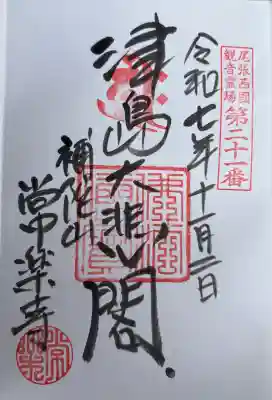 尾張西國
観音霊場
第二十一番
令和七年十一月二日
津島大悲閣
補佗山
常楽寺